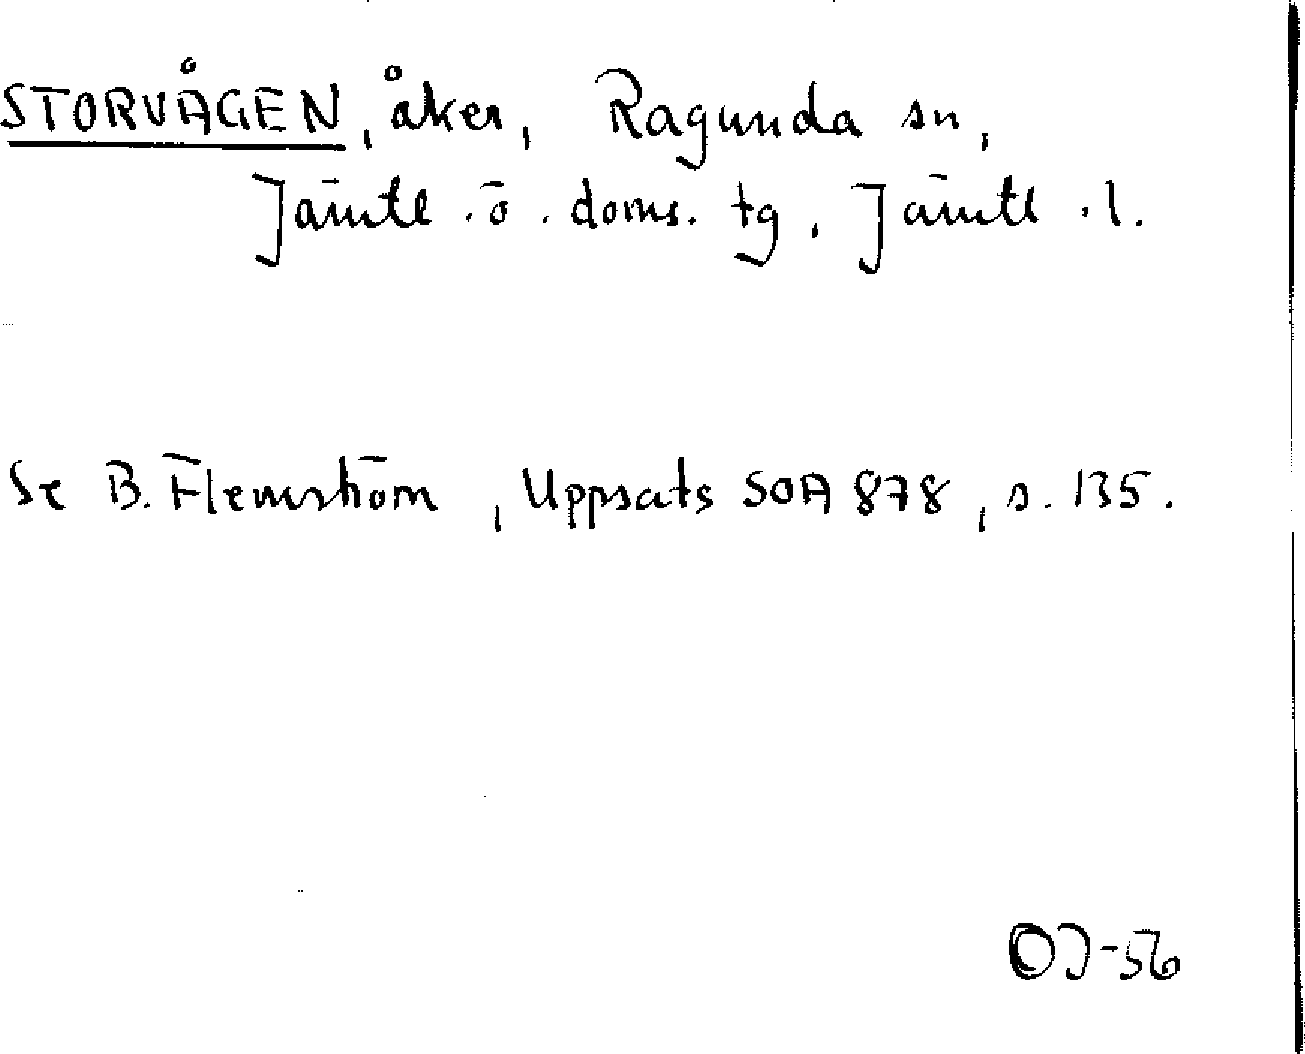 STORVÅGEN, åker, Ragunda sn,
Jämtl. ö. doms. tg, Jämtl. l.
Se B. Flemström, Uppsats SOA 878, s. 135.
OJ-56